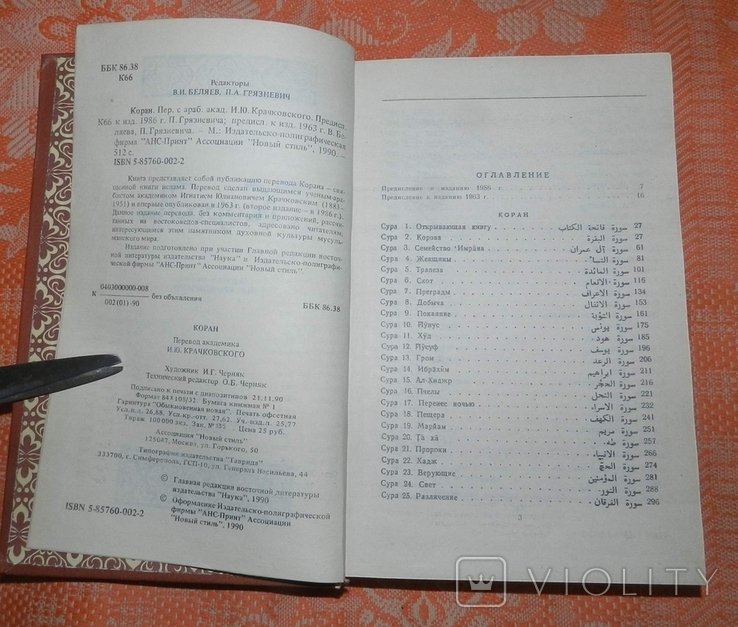 ББК 86.38
К66
Редакторы
В.И. БЕЛЯЕВ, П.А. ГРЯЗНЕВИЧ
Коран. Пер. с араб. акад. И.Ю. Крачковского. Предисл.
К66 к изд. 1986 г. П. Грязневича; предисл. к изд. 1963 г. В. Бе-
ляева, П. Грязневича. — М.: Издательско-полиграфическая
фирма "АНС-Принт" Ассоциации "Новый стиль", 1990. —
512 с.
ISBN 5-85760-002-2
Книга представляет собой публикацию перевода Корана — свя-
щенной книги ислама. Перевод сделан выдающимся ученым-ара-
бистом академиком Игнатием Юлиановичем Крачковским (1883-
1951) и впервые опубликован в 1963 г. (второе издание — в 1986 г.).
Данное издание перевода, без комментария и приложений, рассчи-
танных на востоковедов-специалистов, адресовано читателям,
интересующимся этим памятником духовной культуры мусуль-
манского мира.
Издание подготовлено при участии Главной редакции восточной
литературы издательства "Наука" и Издательско-полиграфической
фирмы "АНС-Принт" Ассоциации "Новый стиль".
К 0403000000-008
без объявления
002(01)-90
ББК 86.38
КОРАН
Перевод академика
И.Ю. КРАЧКОВСКОГО
Художник И.Г. Черняк
Технический редактор О.Б. Черняк
Подписано к печати с диапозитивов 21.11.90
Формат 84х108/32. Бумага книжная № 1
Гарнитура "Обыкновенная новая". Печать офсетная
Усл.п.л. 26,88. Усл.кр-отт. 27,62. Уч.изд.л. 25,77
Тираж 100 000 экз. Зак. № 135 Цена 25 руб.
Ассоциация "Новый стиль"
125047, Москва, ул. Горького, 50
Типография издательства "Таврида"
333700, г. Симферополь, ГСП-10, ул. Генерала Васильева, 44
© Главная редакция восточной литературы
издательства "Наука", 1990
© Оформление Издательско-полиграфической
фирмы "АНС-Принт" Ассоциации
"Новый стиль", 1990
ISBN 5-85760-002-2
ОГЛАВЛЕНИЕ
Предисловие к изданию 1986 г. 7
Предисловие к изданию 1963 г. 16
КОРАН
Сура 1. Открывающая книгу سورة فاتحة الكتاب 27
Сура 2. Корова سورة البقرة 27
Сура 3. Семейство ‘Имра̄на سورة آل عمران 61
Сура 4. Женщины سورة النساء 81
Сура 5. Трапеза سورة المائدة 101
Сура 6. Скот سورة الانعام 116
Сура 7. Преграды سورة الاعراف 134
Сура 8. Добыча سورة الانفال 153
Сура 9. Покаяние سورة التوبة 160
Сура 10. Йӯнус سورة يونس 175
Сура 11. Хӯд سورة هود 185
Сура 12. Йӯсуф سورة يوسف 196
Сура 13. Гром سورة الرعد 206
Сура 14. Ибра̄хӣм سورة ابراهيم 211
Сура 15. Ал-Хиджр سورة الحجر 216
Сура 16. Пчелы سورة النحل 221
Сура 17. Перенес ночью سورة الاسراء 232
Сура 18. Пещера سورة الكهف 241
Сура 19. Марйам سورة مريم 251
Сура 20. Т̣а̄ ха̄ سورة طه 257
Сура 21. Пророки سورة الانبياء 266
Сура 22. Хадж سورة الحج 274
Сура 23. Верующие سورة المؤمنين 281
Сура 24. Свет سورة النور 288
Сура 25. Различение سورة الفرقان 296
3
VIOLITY